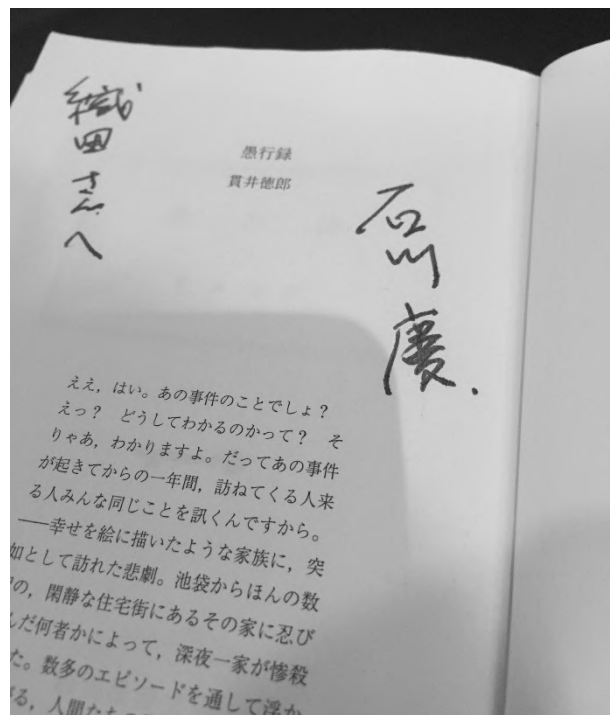 織田さんへ
愚行録
貫井徳郎
石川慶.
ええ,はい。あの事件のことでしょ?
えっ? どうしてわかるのかって? そ
りゃあ,わかりますよ。だってあの事件
が起きてからの一年間,訪ねてくる人来
る人みんな同じことを訊くんですから。
――幸せを絵に描いたような家族に,突
如として訪れた悲劇。池袋からほんの数
の,閑静な住宅街にあるその家に忍び
んだ何者かによって,深夜一家が惨殺
た。数多のエピソードを通して浮か
る,人間たちの